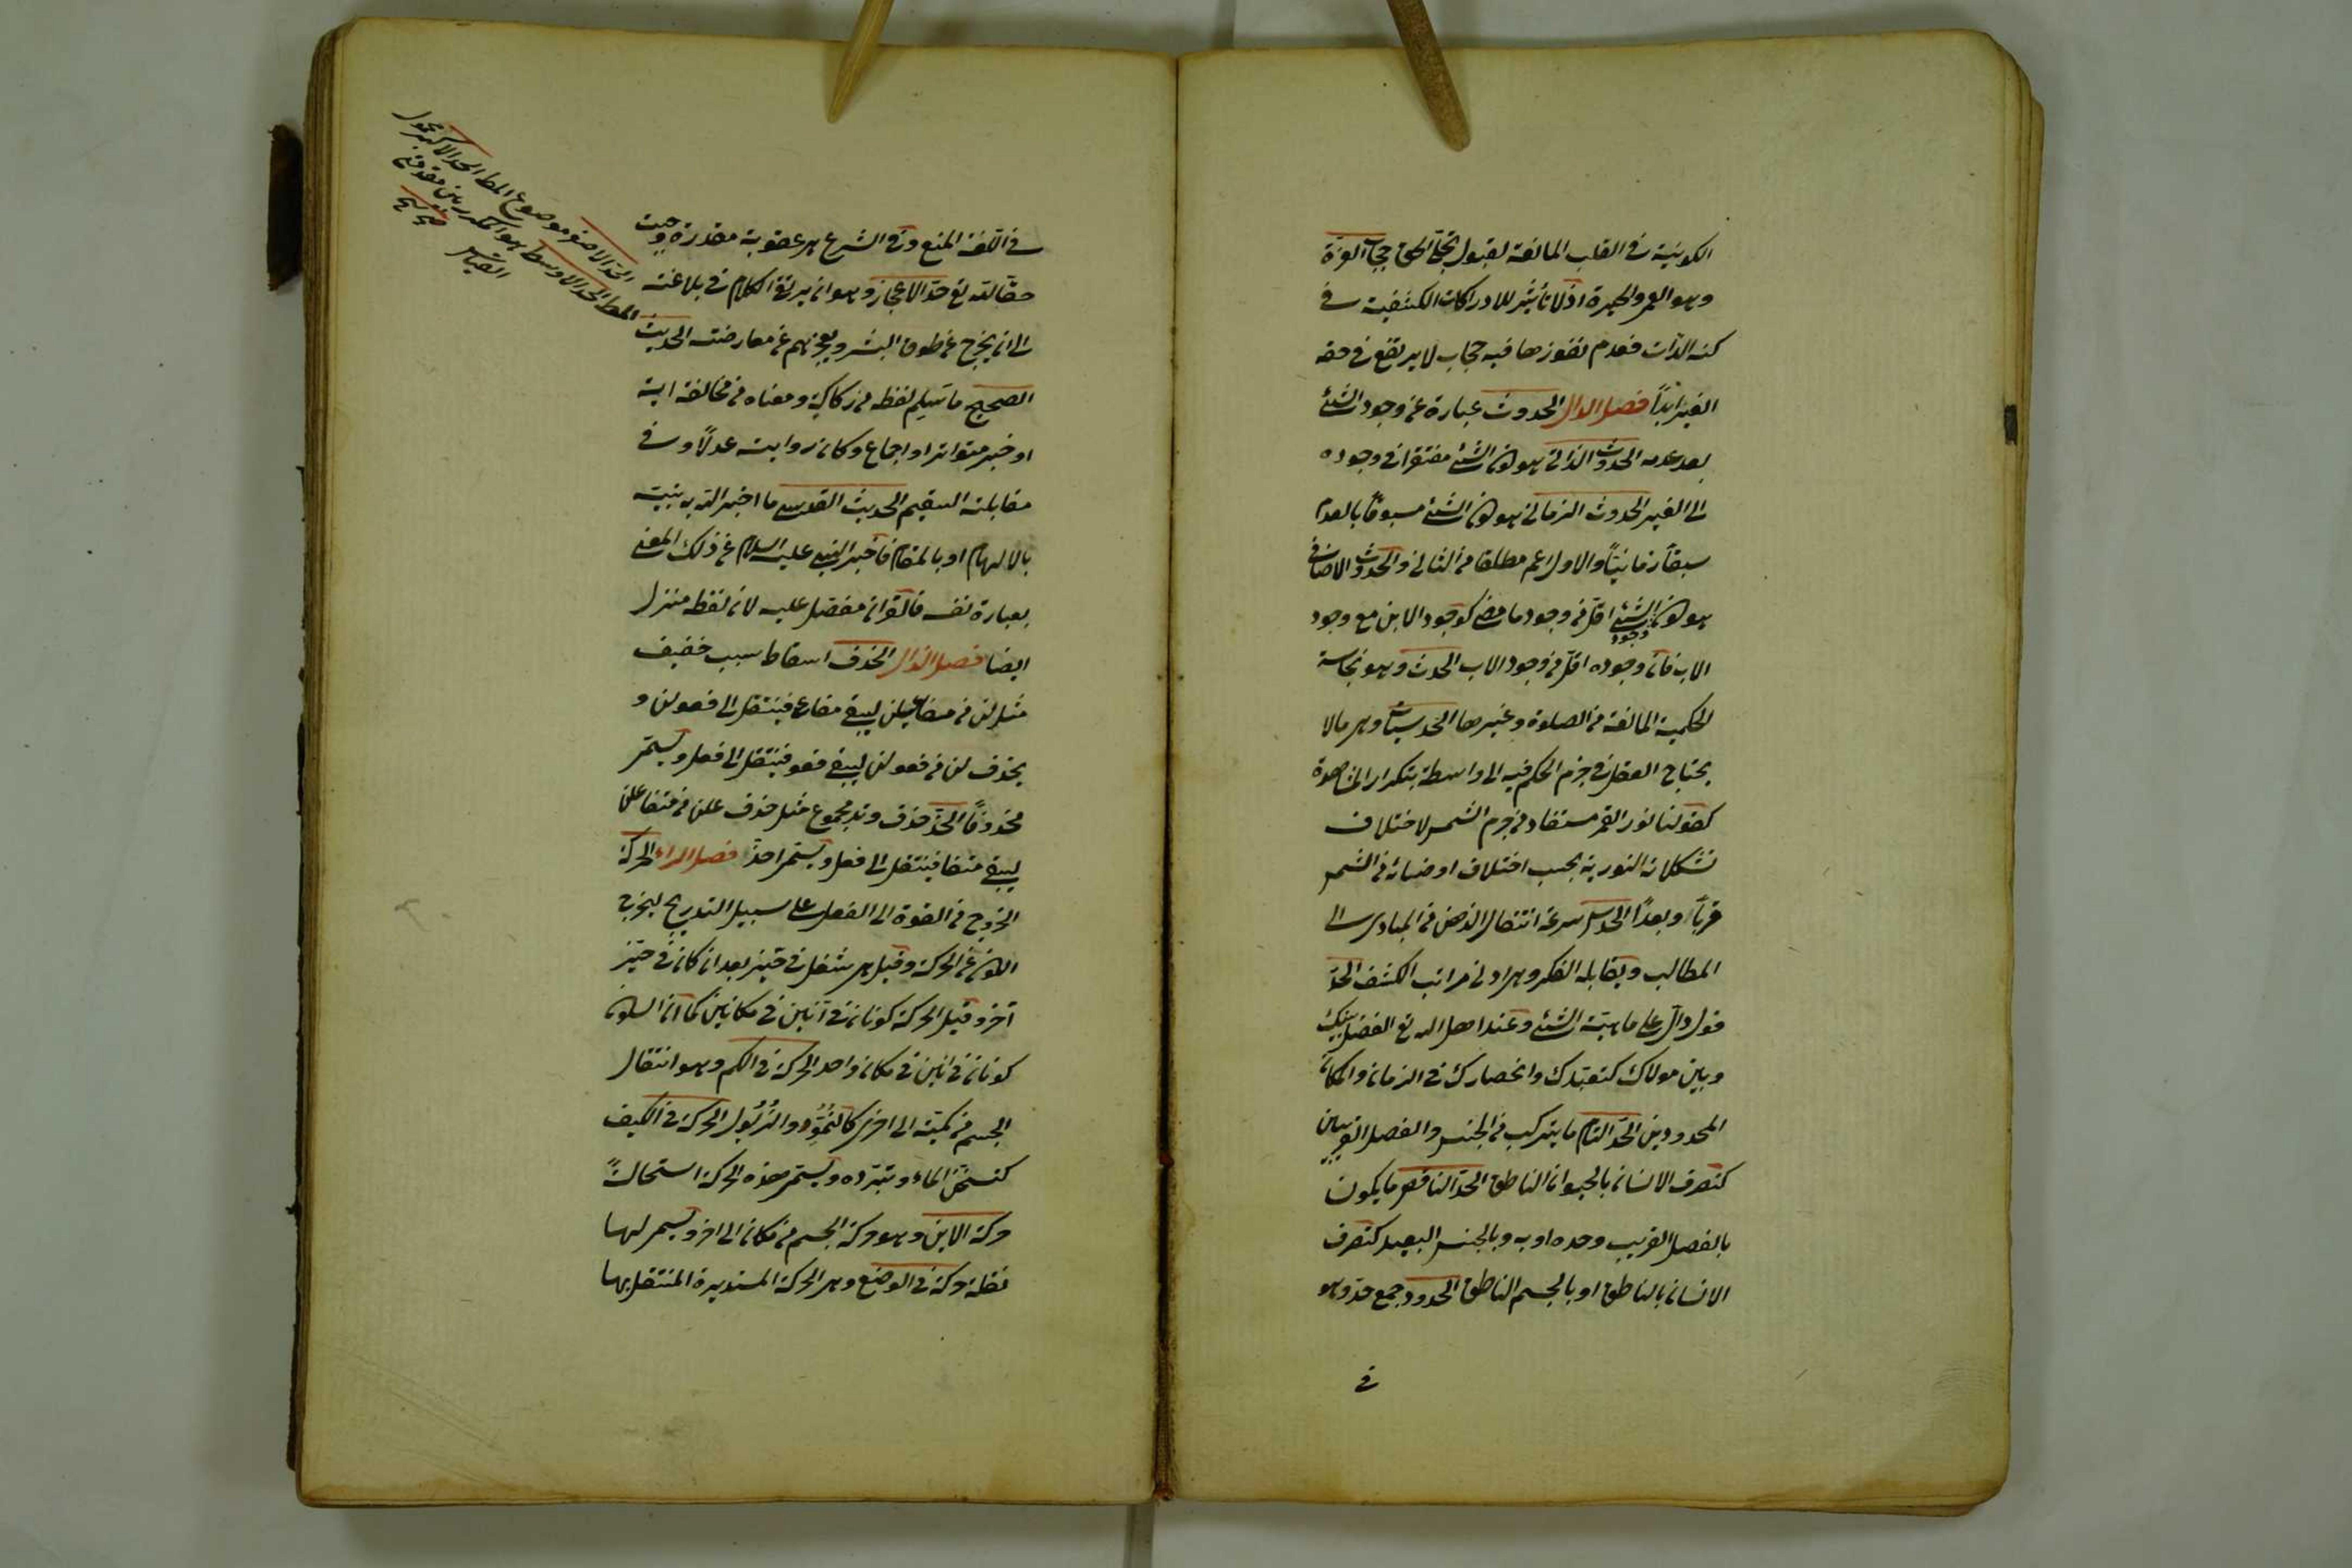 الكونية في القلب المانعة لقبول تجلي الحق حجاب العزة
وهو العمى والحيرة اذ لا تأثير للادراكات الكشفية في
كنه الذات فعدم نفوذها فيه حجاب لا يرتفع في حق
الغير ابداً فصل الدال الحدوث عبارة عن وجود الشئ
بعد عدمه الحدوث الذاتي هو كون الشئ مفتقرا في وجوده
الى الغير الحدوث الزماني هو كون الشئ مسبوقاً بالعدم
سبقاً زمانيّاً والاول اعم مطلقا من الثاني والحدوث الاضافي
هو كون الشئ وجود اقل من وجود ما مضى كوجود الابن مع وجود
الاب فان وجوده اقل من وجود الاب الحدث وهو نجاسة
الحكمية المانعة من الصلوة وغيرها الحدسيات وهي ما لا
يحتاج العقل في جزم الحكم فيه الى واسطة بتكرار المشاهدة
كقولنا نور القمر مستفاد من جرم الشمس لاختلاف
تشكلاته النورية بحسب اختلاف اوضاعه من الشمس
قرباً وبعداً الحدس سرعة انتقال الذهن من المبادى الى
المطالب ويقابله الفكر وهى ادنى مراتب الكشف الحدّ
قول دالّ على ماهيّة الشئ وعند اهل الله تع الفصل بينك
وبين مولاك كتعبّدك وانحصارك في الزمان والمكان
المحدودين الحدّ التام ما يتركب من الجنس والفصل القريبين
كتعرف الانسان بالحيوان الناطق الحدّ الناقص ما يكون
بالفصل القريب وحده او به وبالجنس البعيد كتعرف
الانسان بالناطق او بالجسم الناطق الحدود جمع حدّ وهو
في
في اللغة المنع وفي الشرع هي عقوبة مقدرة وجبت
حقّا لله تع حدّ الاعجاز وهو ان يرتقى الكلام في بلاغته
الى ان يخرج عن طوق البشر ويعجزهم عن معارضته الحديث
الصحيح ما سلم لفظه من ركاكة ومعناه من مخالفة اية
او خبر متواتر او اجماع وكان روايته عدلاً وفي
مقابلته السقيم الحديث القدسي ما اخبر الله به نبيّه
بالالهام او بالمنام فاخبر النبي عليه السلام عن ذلك المعنى
بعبارة نفسه فالقران مفضل عليه لان لفظه منزل
ايضا فصل الذال الحذف اسقاط سبب خفيف
مثل لن من مفاعيلن ليبقى مفاعى فينتقل الى فعولن و
يحذف لن من فعولن ليبقى فعو فينتقل الى فعل ويسمّى
محذوفاً الحذّ حذف وتد مجموع مثل حذف علن من متفاعلن
ليبقى متفا فينتقل الى فعلن ويسمّى احذّ فصل الراء الحركة
الخروج من القوة الى الفعل على سبيل التدريج ليخرج
الكون عن الحركة وقيل هي شغل في حيّز بعد ان كان في حيّز
آخر وقيل الحركة كونان في آنين في مكانين كما ان السكون
كونان في انين في مكان واحد الحركة في الكم وهو انتقال
الجسم من كميّة الى اخرى كالنُمُوّ والذُبُول الحركة في الكيف
كتسخّن الماء وتبرّده ويسمّى هذه الحركة استحالةً
حركة الاين وهو حركة الجسم من مكان الى اخر ويسمى لها
نقلة حركة في الوضع وهى الحركة المستديرة المنتقل بها
الحدّ الاصغر موضوع المط الحد الاكبر محمول
المط الحد الاوسط هو المكرر بين مقدمتى
القياس